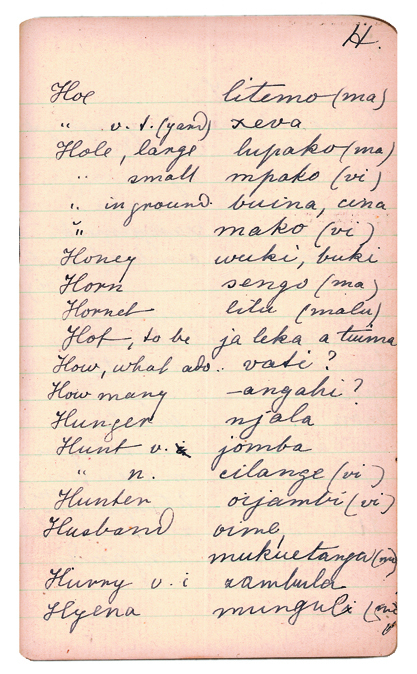 H.
Hoe litemo (ma)
" v.t. (yard) xeva
Hole, large lupako (ma)
" small mpako (vi)
" in ground buina, cina
" mako (vi)
Honey wuki, buki
Horn sengo (ma)
Hornet litu (malu)
Hot, to be ja leka a tuima
How, what ado.. vati?
How many -angahi?
Hunger njala
Hunt v. i jomba
" n. cilange (vi)
Hunter cijambi (vi)
Husband
mukuetanga
Hurry v. i zambula
Hyena munguli